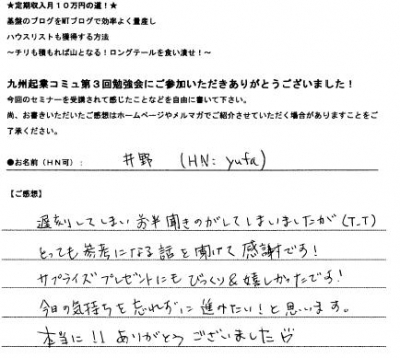 ★定期収入月１０万円の道！★
基盤のブログをMTブログで効率よく量産し
ハウスリストも獲得する方法
～チリも積もれば山となる！ロングテールを食い潰せ！～
九州起業コミュ第３回勉強会にご参加いただきありがとうございました！
今回のセミナーを受講されて感じたことなどを自由に書いて下さい。
尚、お書きいただいたご感想はホームページやメルマガでご紹介させていただく場合がありますことをご
了承ください。
●お名前（HN可）： 井野 (HN: yufa)
【ご感想】
遅刻してしまい お半聞きのがしてしまいましたが (T_T)
とっても参考になる話を聞けて感謝です！
サプライズプレゼントにもびっくり＆嬉しかったです！
今日の気持ちを忘れずに進めたい！と思います。
本当に！！ありがとうございました